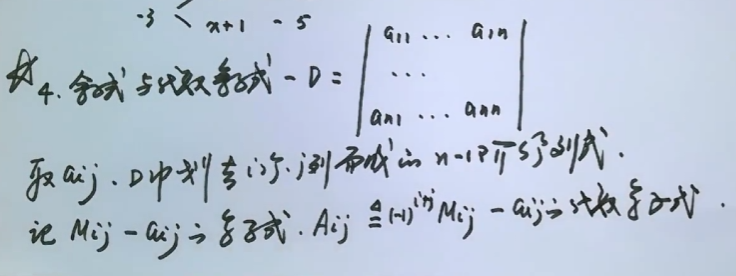 -3 < x+1 - 5
☆ 4. 余子式与代数余子式 - D = | a11 ... a1n
...
an1 ... ann |
取 aij. D中划去i行.j列而成的n-1阶行列式.
记 Mij - aij的余子式. Aij ≜ (-1)^{i+j} Mij - aij的代数余子式.